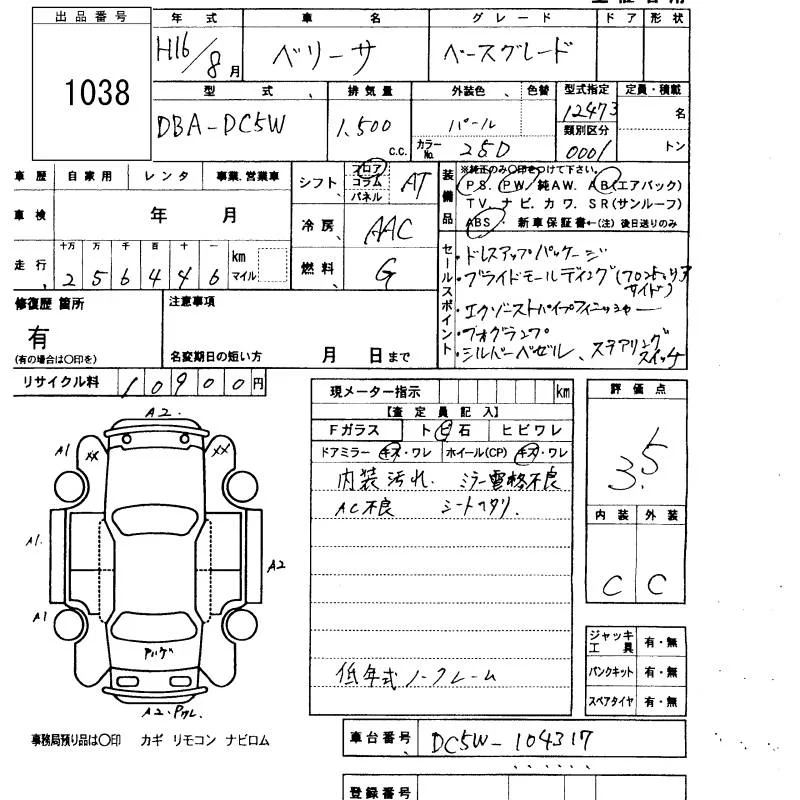 出品番号
1038
年式 車名 グレード ドア 形状
H16/8月 ベリーサ ベースグレード
型式 排気量 外装色 色替 型式指定 定員・積載
DBA-DC5W 1,500 c.c. パール 12473 名
カラーNo. 25D 類別区分 0001 トン
車歴 自家用 レンタ 事業.営業車
車検 年 月
走行 十万 万 千 百 十 一
256446 km マイル
シフト フロア コラム パネル AT
冷房 AAC
燃料 G
装備品
※純正のみ○印をつけて下さい。
PS. PW/純AW. AB(エアバック)
TV. ナビ. カワ. SR(サンルーフ)
ABS・新車保証書←(注)後日送りのみ
セールスポイント
・ドレスアップパッケージ
・ブライドモールディング(フロント,リア
サイド)
・エクゾーストパイプフィニッシャー
・フォグランプ
・シルバーベゼル、ステアリング
スイッチ
修復歴 箇所
有
(有の場合は○印を)
注意事項
名変期日の短い方 月 日まで
リサイクル料 10900円
現メーター指示 km
【査定員記入】
Fガラス トビ石 ヒビワレ
ドアミラー キズ・ワレ ホイール(CP) キズ・ワレ
内装汚れ. ミラー電格不良
AC不良 シートヘタリ.
低年式ノークレーム
評価点
3.5
内装 外装
C C
ジャッキ工具 有・無
パンクキット 有・無
スペアタイヤ 有・無
A2.
A1
XX
XX
A1.
A2
A1
A2.
事務局預り品は○印 カギ リモコン ナビロム
車台番号 DC5W-104317
登録番号